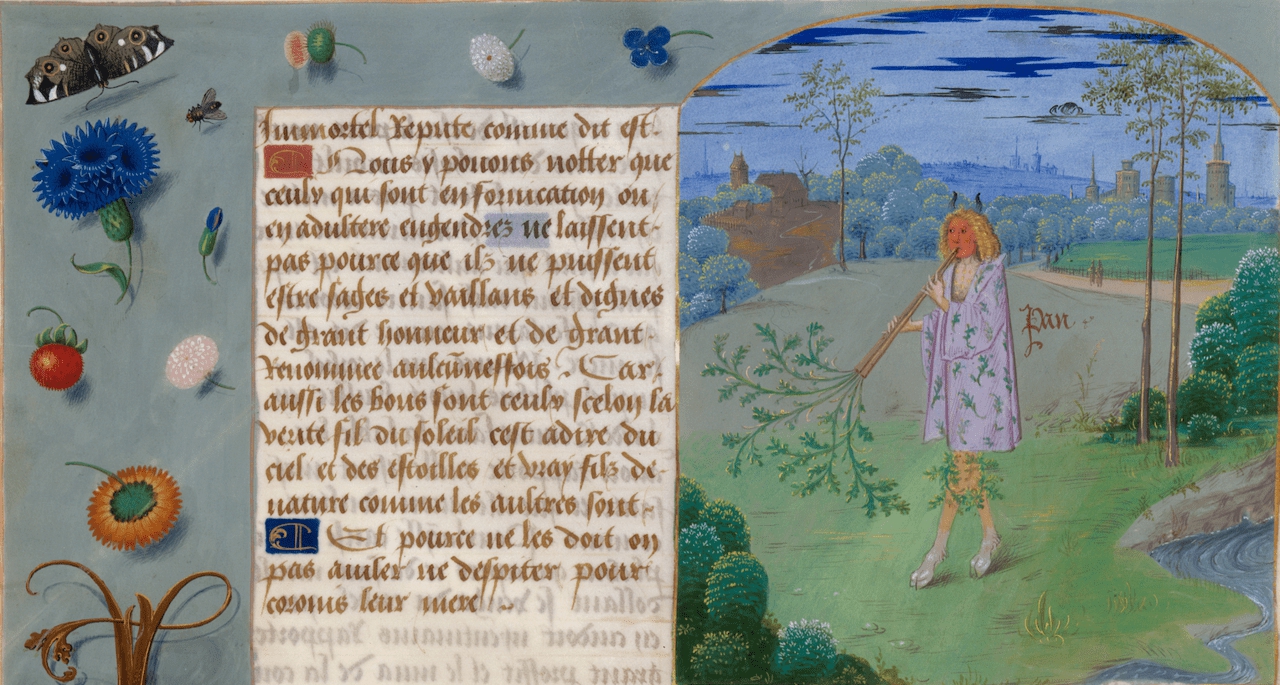 Immortel Repute comme dit est.
Nous y pouons notter que
ceulx qui sont en fornication ou
en adultere engendrez ne laissent
pas pource que ilz ne puissent
estre sages et vaillans et dignes
de grant honneur et de grant
Renommee aulcuneffois. Car
aussi les bons sont ceulx scelon la
verite filz du soleil cest adire du
ciel et des estoilles et vray filz de
nature comme les aultres sont.
Et pource ne les doit on
pas auiler ne despiter pour
coronis leur mere.
Pan